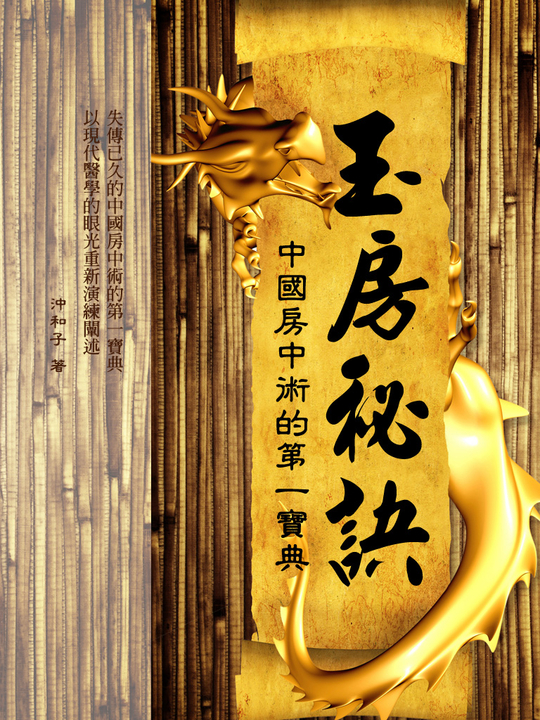 玉房秘訣
中國房中術的第一寶典
失傳已久的中國房中術的第一寶典
以現代醫學的眼光重新演練闡述
沖和子 著